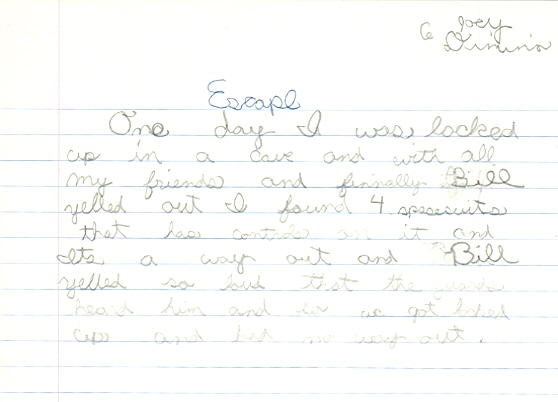 Joey
Escape
One day I was locked
up in a cave and with all
my friends and finnally Bill
yelled out I found 4 spacesuits
that has controls on it and
Its a way out and Bill
yelled so loud that the guards
heard him and so we got locked
up and had no way out.